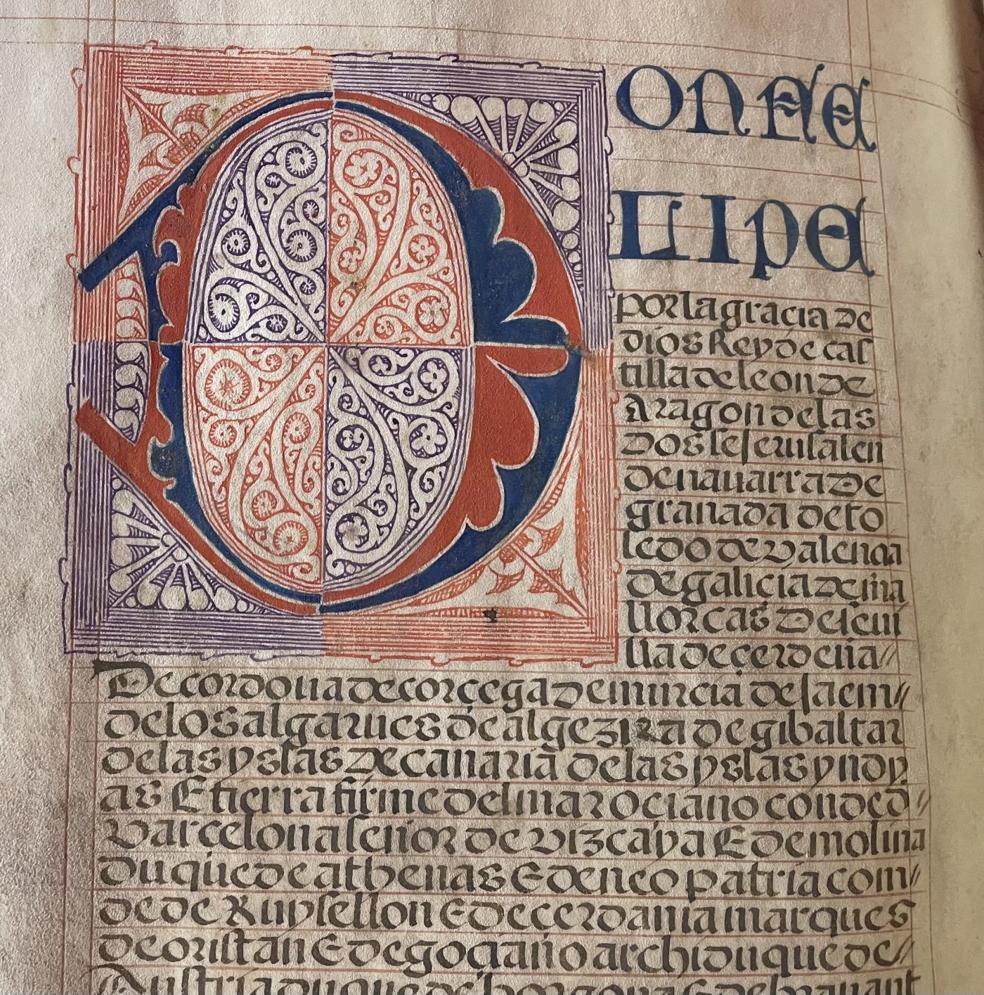 DON FE
LIPE
por la gracia de
dios Rey de cas
tilla de leon de
Aragon de las
dos seserusalen
de nauarra de
granada de to
ledo de valencia
de galicia de ma
llorcas de seui
lla de çerdeña//
De cordoua de corçega de murcia de Jaem//
de los algarues de algezira de gibaltar
de las yslas de canaria de las yslas yndy
as E tierra firme del mar oçiano conde d//
Varcelona señor de vizcaya E de molina
Duque de athenas E de neo patria com//
de de Ruysellon E de çerdania marques
de oristan E de goçano archiduque de//
Austria duque de borgoña E de brauant